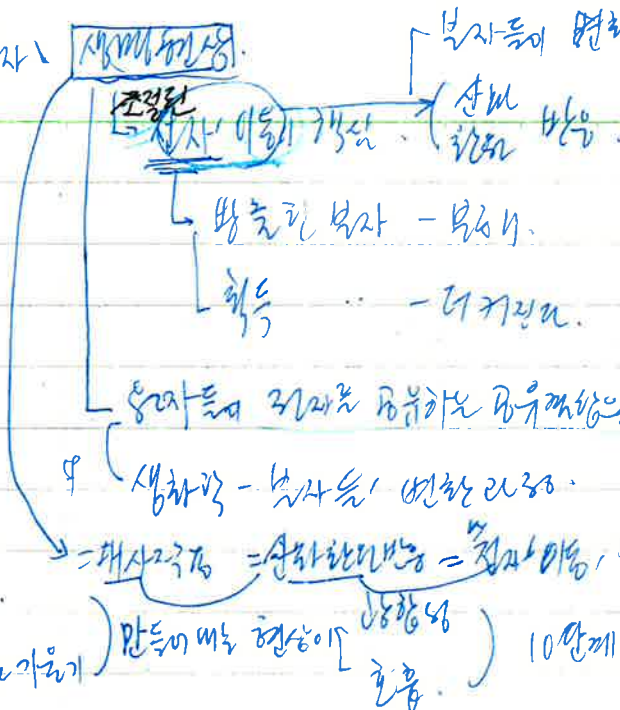 생명현상.
분자들의 변화
조절된
전자' 이동이 핵심. (산화 환원 반응.
방출한 분자 - 분해.
획득 〃 - 더 커진다.
원자들이 전자를 공유하는 공유결합을
생화학 - 분자들' 변환 과정.
= 대사작용 = 산화환원반응 = 전자' 이동,
기울기 ) 만들어 내는 현상이 [ 광합성 호흡. ) 10단계